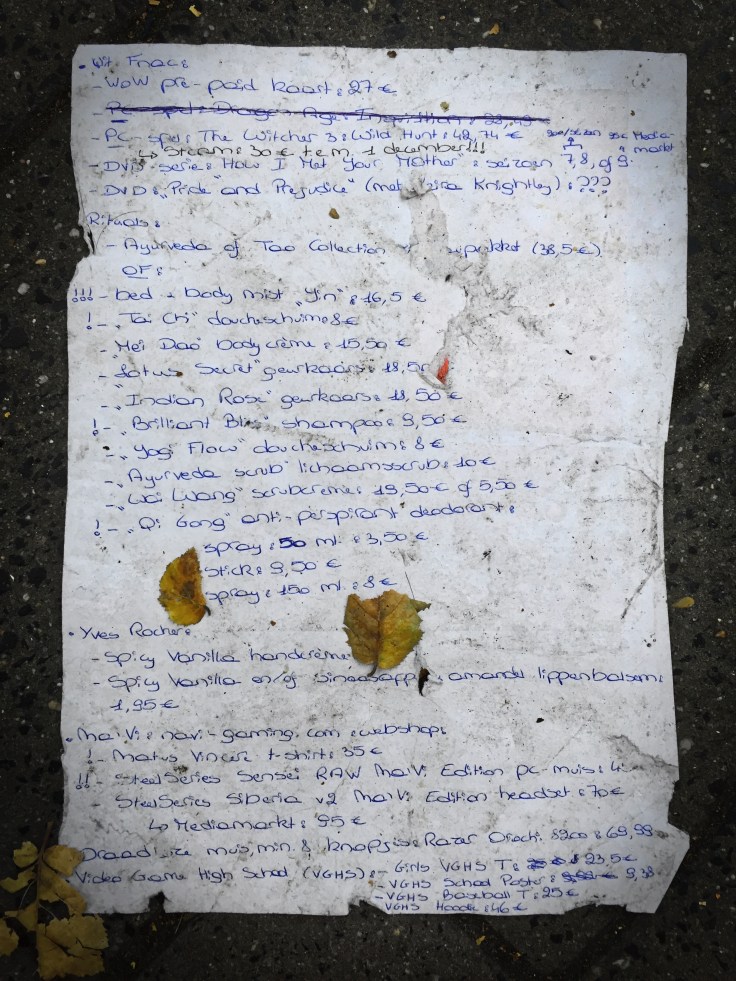 • Uit Fnac:
- WoW pre-paid kaart: 27 €
- PC-spel: Dragon Age: Inquisition:
- PC-spel: The Witcher 3: Wild Hunt: 42,74 €
↳ Steam: 30 € t.e.m. 1 december!!!
- DVD-serie: "How I Met Your Mother": seizoen 7, 8, of 9. markt
- DVD: "Pride and Prejudice" (met Keira Knightley): ???
Rituals:
- Ayurveda of Tao Collection (38,5 €)
OF:
!!! - bed & body mist "Yin": 16,5 €
! - "Tai Chi" doucheschuim: 8 €
- "Mei Dao" bodycrème: 15,50 €
- "Lotus Secret" geurkaars: 18,50
- "Indian Rose" geurkaars: 18,50 €
! - "Brilliant Bliss" shampoo: 9,50 €
- "Yogi Flow" doucheschuim: 8 €
- "Ayurveda scrub" lichaamsscrub: 10 €
- "Wai Wang" scrubcrème: 19,50 € of 5,50 €
! - "Qi Gong" anti-perspirant deodorant:
spray: 50 ml: 3,50 €
stick: 9,50 €
spray: 150 ml: 8 €
• Yves Rocher:
- Spicy Vanilla handcrème
- Spicy Vanilla en/of amandel lippenbalsem:
1,95 €
• Na'Vi: navi-gaming.com: webshop:
! - Natus Vincere t-shirt: 35 €
!! - SteelSeries Sensei RAW Na'Vi Edition pc-muis:
- SteelSeries Siberia v2 Na'Vi Edition headset: 70 €
↳ Mediamarkt: 95 €
Draadloze muis, min. 8 knopjes: Razer Orochi 8200: 69,99
Video Game High School (VGHS): - Girls VGHS T: 23,5 €
- VGHS School Poster: 9,38
- VGHS Baseball T: 25 €
VGHS Hoodie: 46 €